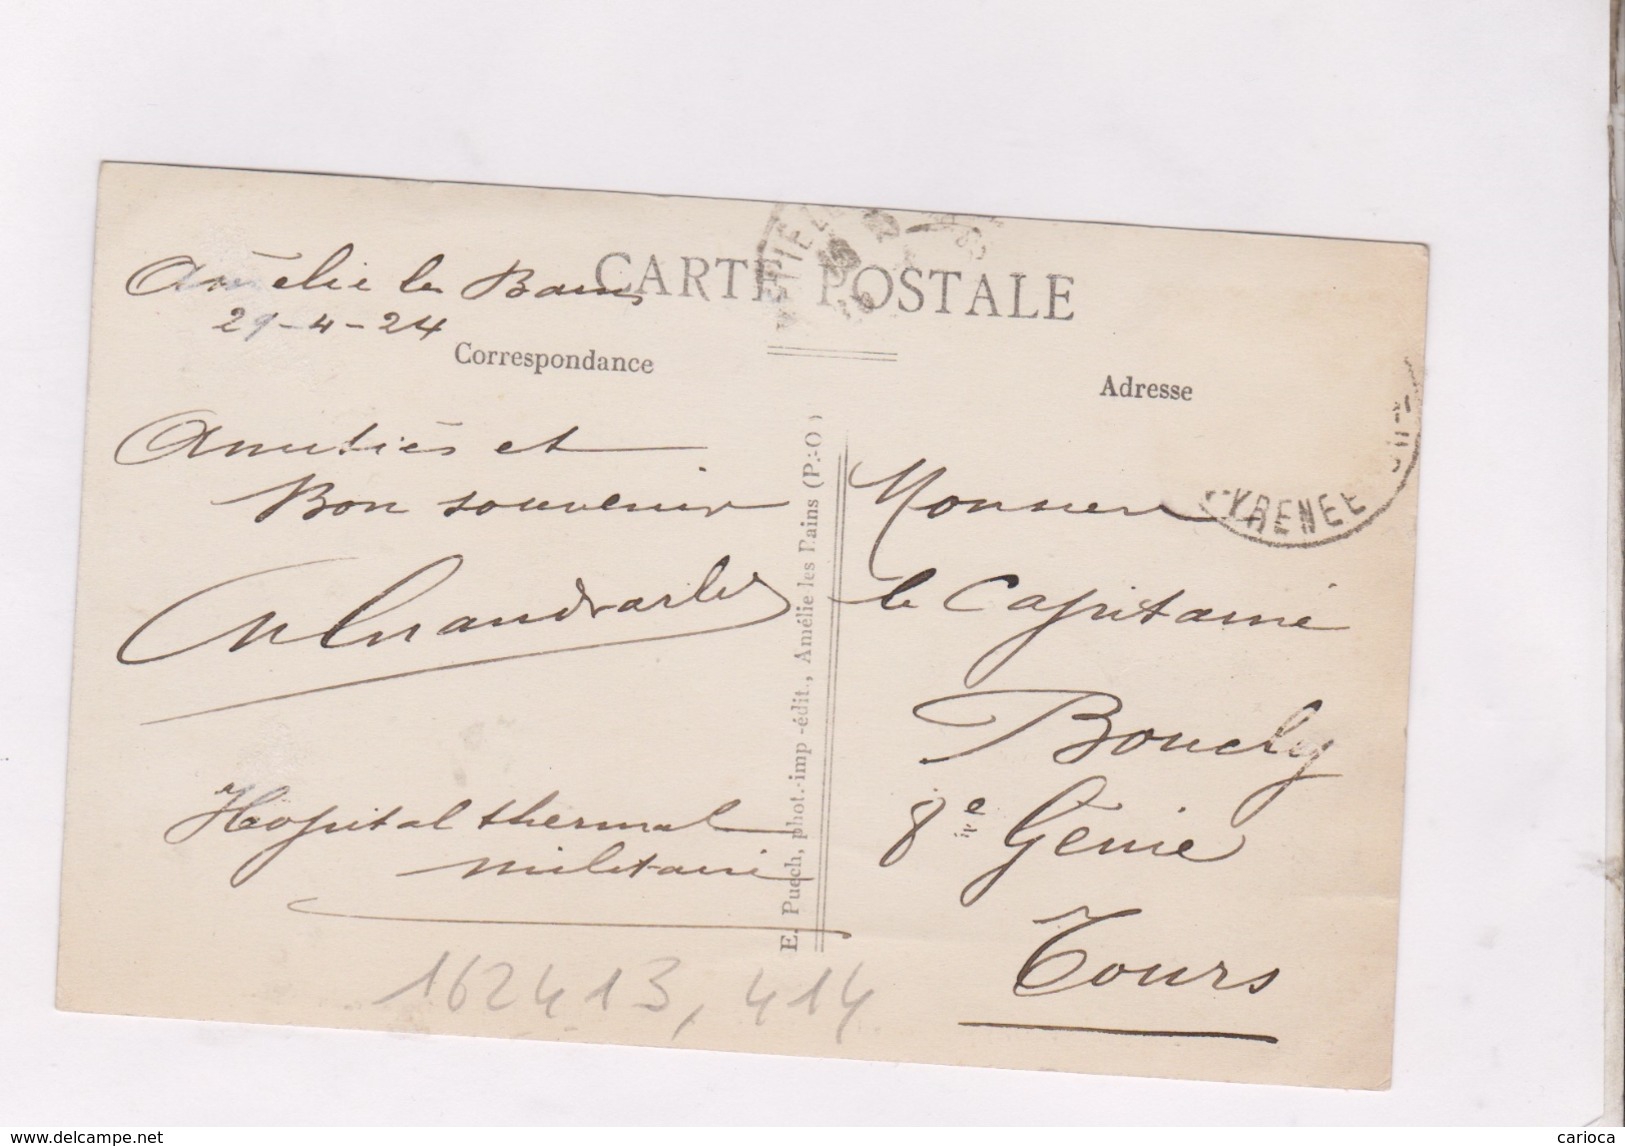 CARTE POSTALE
Amélie les Bains
29-4-24
Correspondance
Adresse
Amitiés et
Bon souvenir
Hopital thermal
militaire
E. Puech, phot.-imp.-édit., Amélie les Bains (P.-O)
Monsieur
le Capitaine
Bouchy
8e Génie
Tours
YRENEE
162413, 414
carioca
www.delcampe.net